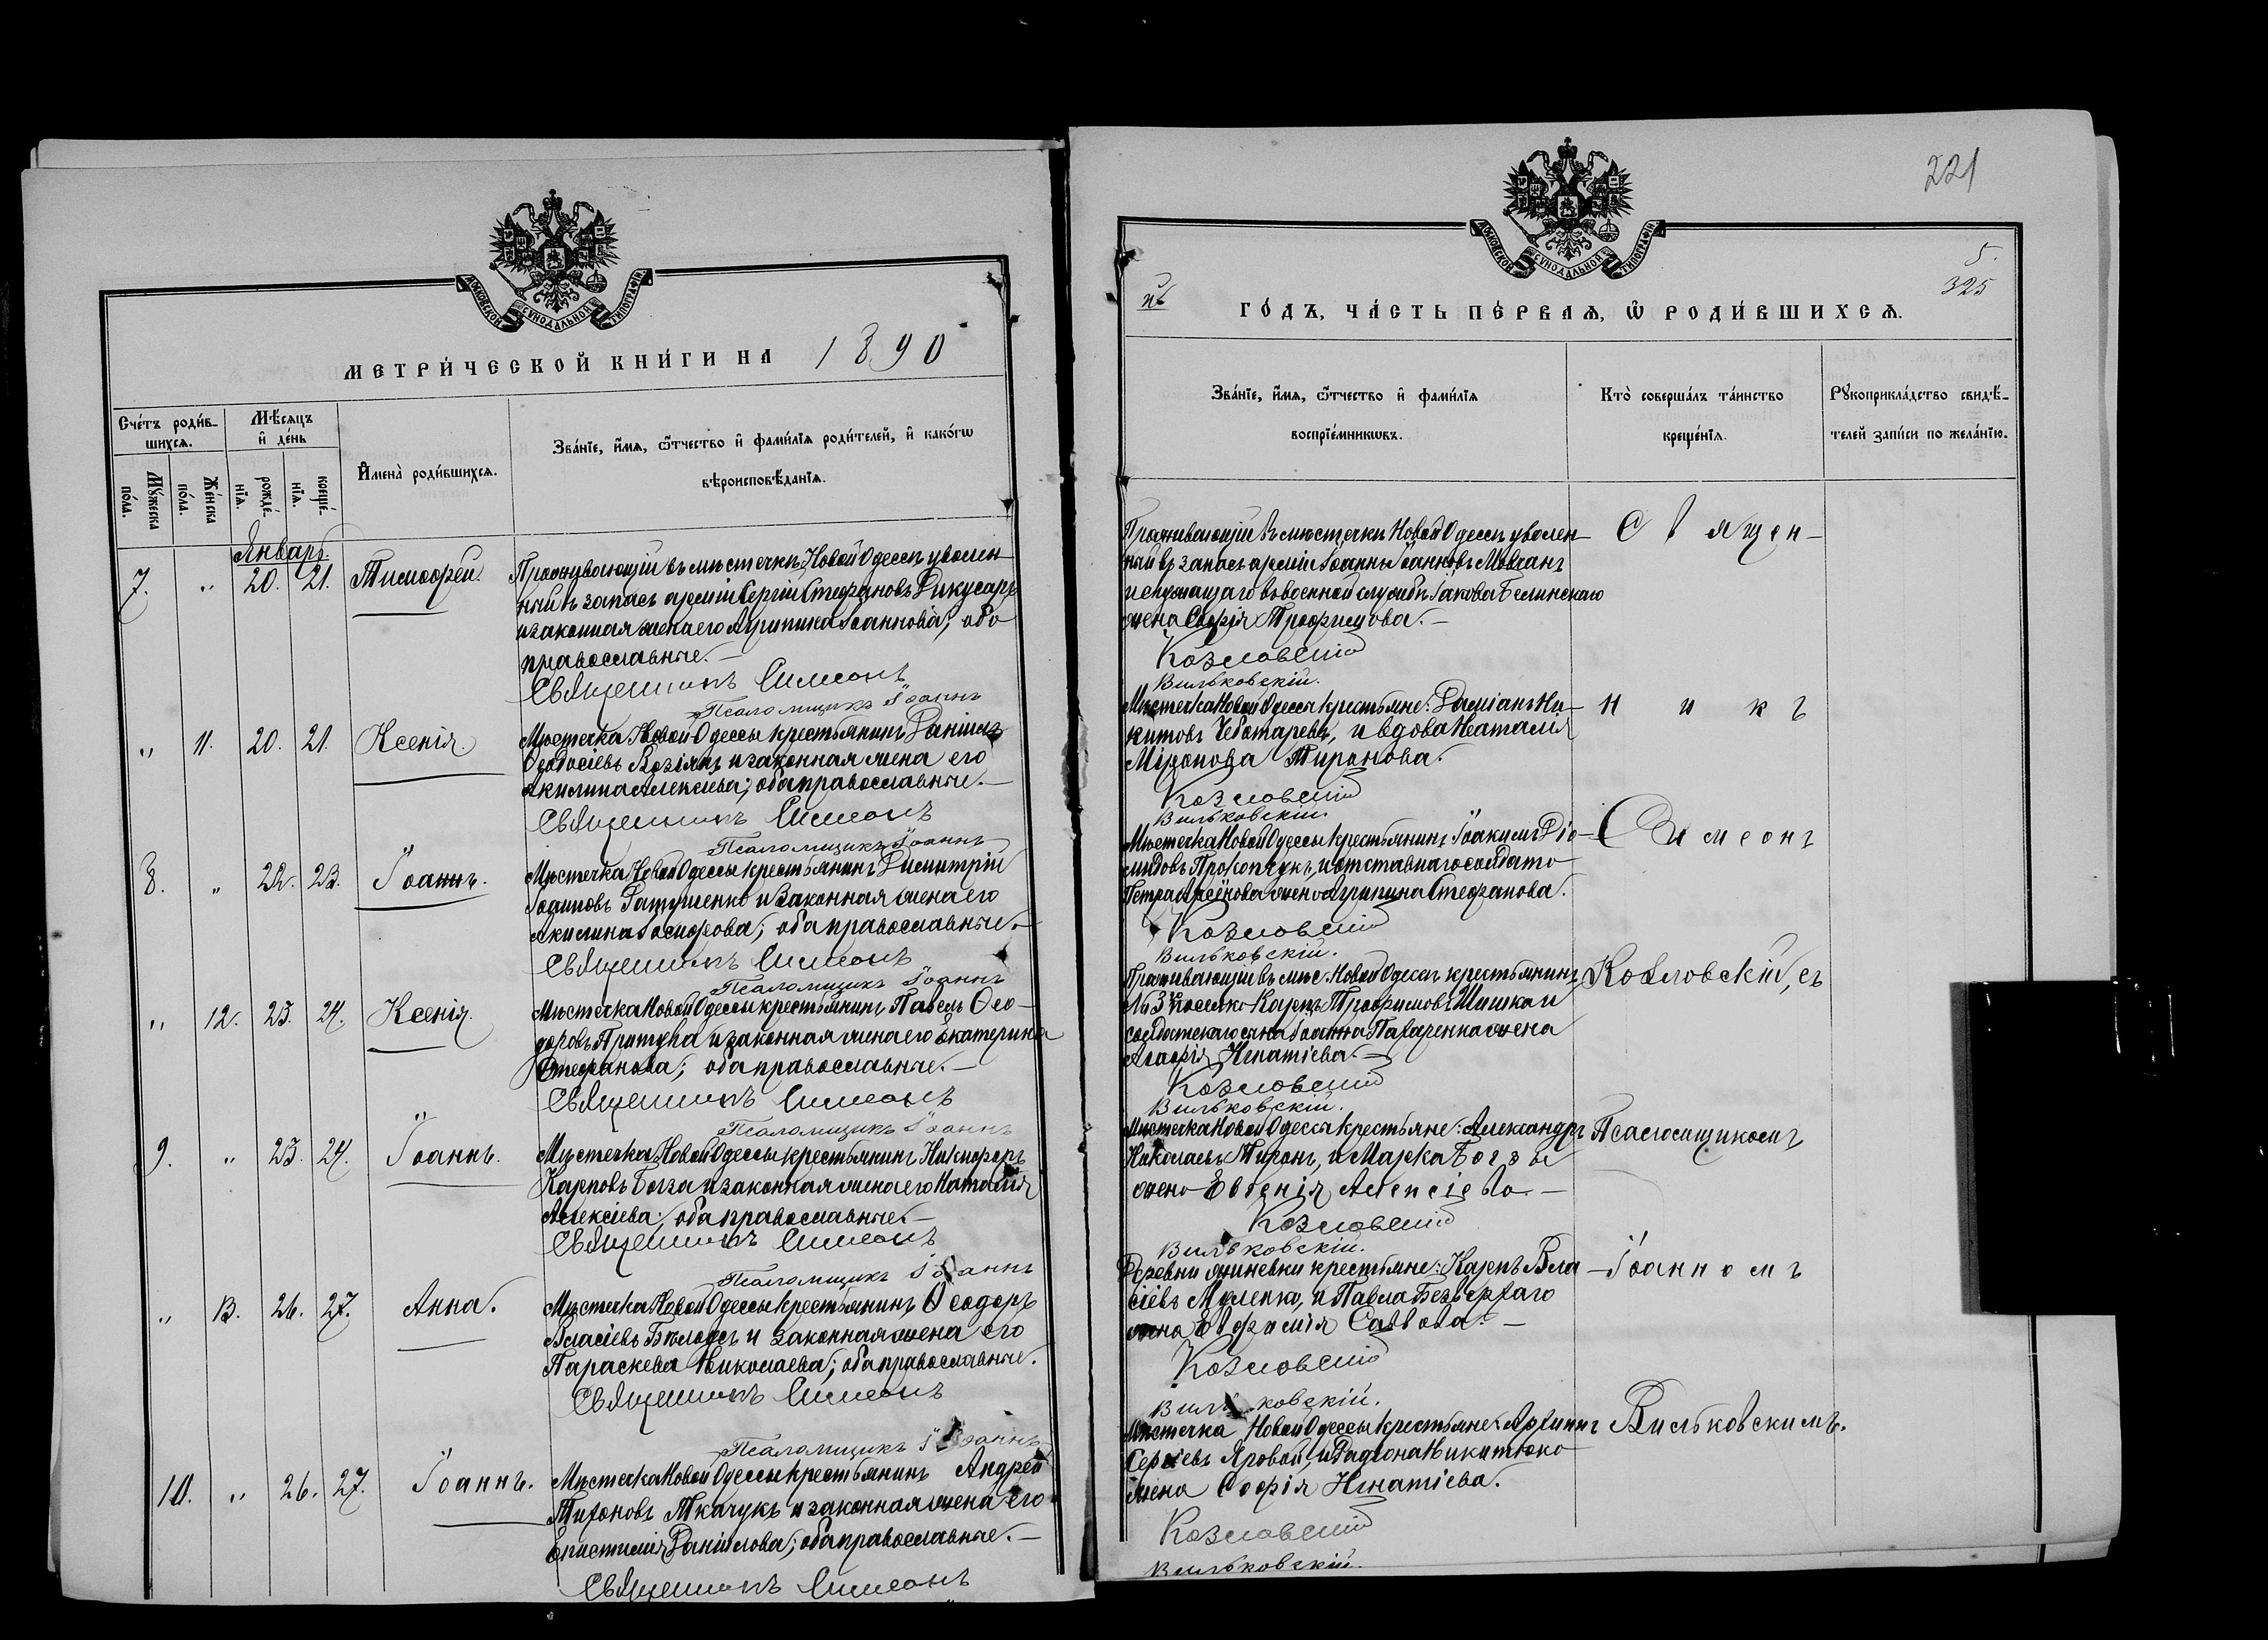 МОСКОВСКОЙ СѴНОДАЛЬНОЙ ТИПОГРАФІИ
МЕТРИ́ЧЕСКОЙ КНИ́ГИ НА 1890
Сче́тъ роди́в-
шихсѧ.
Мѣ́сѧцъ
и҆ де́нь
Мꙋ́жеска по́ла.
Же́нска по́ла.
рожде́-
нїѧ.
креще́-
нїѧ.
И҆мена̀ роди́вшихсѧ.
Зва́нїе, и҆́мѧ, ѻ҆́тчество и҆ фами́лїѧ роди́телей, и҆ како́гѡ
вѣроисповѣ́данїѧ.
Январь.
7. " 20. 21. Тимофей.
Проживающій въ мѣстечкѣ Новой Одессѣ уволен-
ный въ запасъ арміи Сергій Стефановъ Дикусаръ
и законная жена его Агрипина Іоаннова; оба
православные.—
Священникъ Симеонъ
Псаломщикъ Іоаннъ
" 11. 20. 21. Ксенія.
Мѣстечка Новой Одессы крестьянинъ Даніилъ
Ѳеодосіевъ Козіянъ и законная жена его
Акилина Алексіева; оба православные.—
Священникъ Симеонъ
Псаломщикъ Іоаннъ
8. " 22. 23. Іоаннъ.
Мѣстечка Новой Одессы крестьянинъ Димитрій
Іоанновъ Гатушенко и законная жена его
Акилина Іосифова; оба православные.—
Священникъ Симеонъ
Псаломщикъ Іоаннъ
" 12. 23. 24. Ксенія.
Мѣстечка Новой Одессы крестьянинъ Павелъ Ѳео-
доровъ Притула и законная жена его Екатерина
Стефанова; оба православные.—
Священникъ Симеонъ
Псаломщикъ Іоаннъ
9. " 23. 24. Іоаннъ.
Мѣстечка Новой Одессы крестьянинъ Никифоръ
Карповъ Богза и законная жена его Наталія
Алексіева; оба православные.—
Священникъ Симеонъ
Псаломщикъ Іоаннъ
" 13. 26. 27. Анна.
Мѣстечка Новой Одессы крестьянинъ Ѳеодоръ
Власіевъ Бѣлоусъ и законная жена его
Параскева Николаева; оба православные.
Священникъ Симеонъ
Псаломщикъ Іоаннъ
10. " 26. 27. Іоаннъ.
Мѣстечка Новой Одессы крестьянинъ Андрей
Тихоновъ Ткачукъ и законная жена его
Епистимія Даніилова; оба православные.—
Священникъ Симеонъ
221
МОСКОВСКОЙ СѴНОДАЛЬНОЙ ТИПОГРАФІИ
5.
325
й
ГО́ДЪ, ЧА́СТЬ ПЕ́РВАѦ, Ѡ҆ РОДИ́ВШИХСѦ.
Зва́нїе, и҆́мѧ, ѻ҆́тчество и҆ фами́лїѧ
воспрїе́мникѡвъ.
Кто̀ соверша́лъ та́инство
креще́нїѧ.
Рꙋкоприкла́дство свидѣ́-
телей за́писи по жела́нїю.
Проживающіи въ мѣстечкѣ Новой Одессѣ уволен-
ный въ запасъ арміи Іоаннъ Іоанновъ Мовчанъ
и служащаго въ военной службѣ Іакова Белинскаго
жена Софія Трофимова.—
Козловскій
Вильковскій.
Мѣстечка Новой Одессы крестьяне: Даміанъ Ни-
китовъ Чеботаревъ, и вдова Наталія
Миронова Тиронова.
Козловскій
Вильковскій.
Мѣстечка Новой Одессы крестьянинъ Іоакимъ Діо-
мидовъ Прокопчукъ, и отставнаго солдата
Петра Арсёнова жена Агрипина Стефанова.
Козловскій
Вильковскій.
Проживающій въ мѣс. Новой Одессѣ крестьянинъ
Карпъ Трофимовъ Шишка и
солдатскаго сына Іоанна Пахаренка жена
Агафія Игнатіева.—
Козловскій
Вильковскій.
Мѣстечка Новой Одессы крестьяне: Александръ
Николаевъ Тиронъ, и Марка Богзы
жена Евгенія Алексіева.—
Козловскій
Вильковскій.
Деревни крестьяне: Карпъ Вла-
сіевъ и Павла Безверхаго
жена Евфимія Саввова.—
Козловскій
Вильковскій.
Мѣстечка Новой Одессы крестьяне: Архипъ
Сергіевъ Яровой, и Радіона Никитюка
жена Софія Игнатіева.
Козловскій
Вильковскій.
Священ-
никъ
Симеонъ
Козловскій, съ
Псаломщикомъ
Іоанномъ
Вильковскимъ.